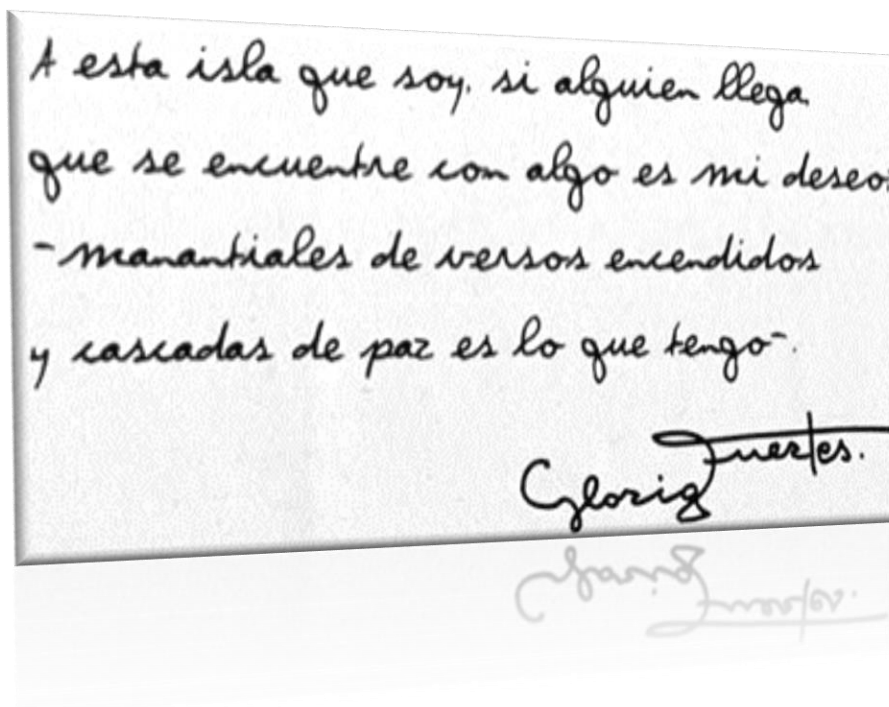 A esta isla que soy, si alguien llega,
que se encuentre con algo es mi deseo;
-manantiales de versos encendidos
y cascadas de paz es lo que tengo-.
Gloria Fuertes.